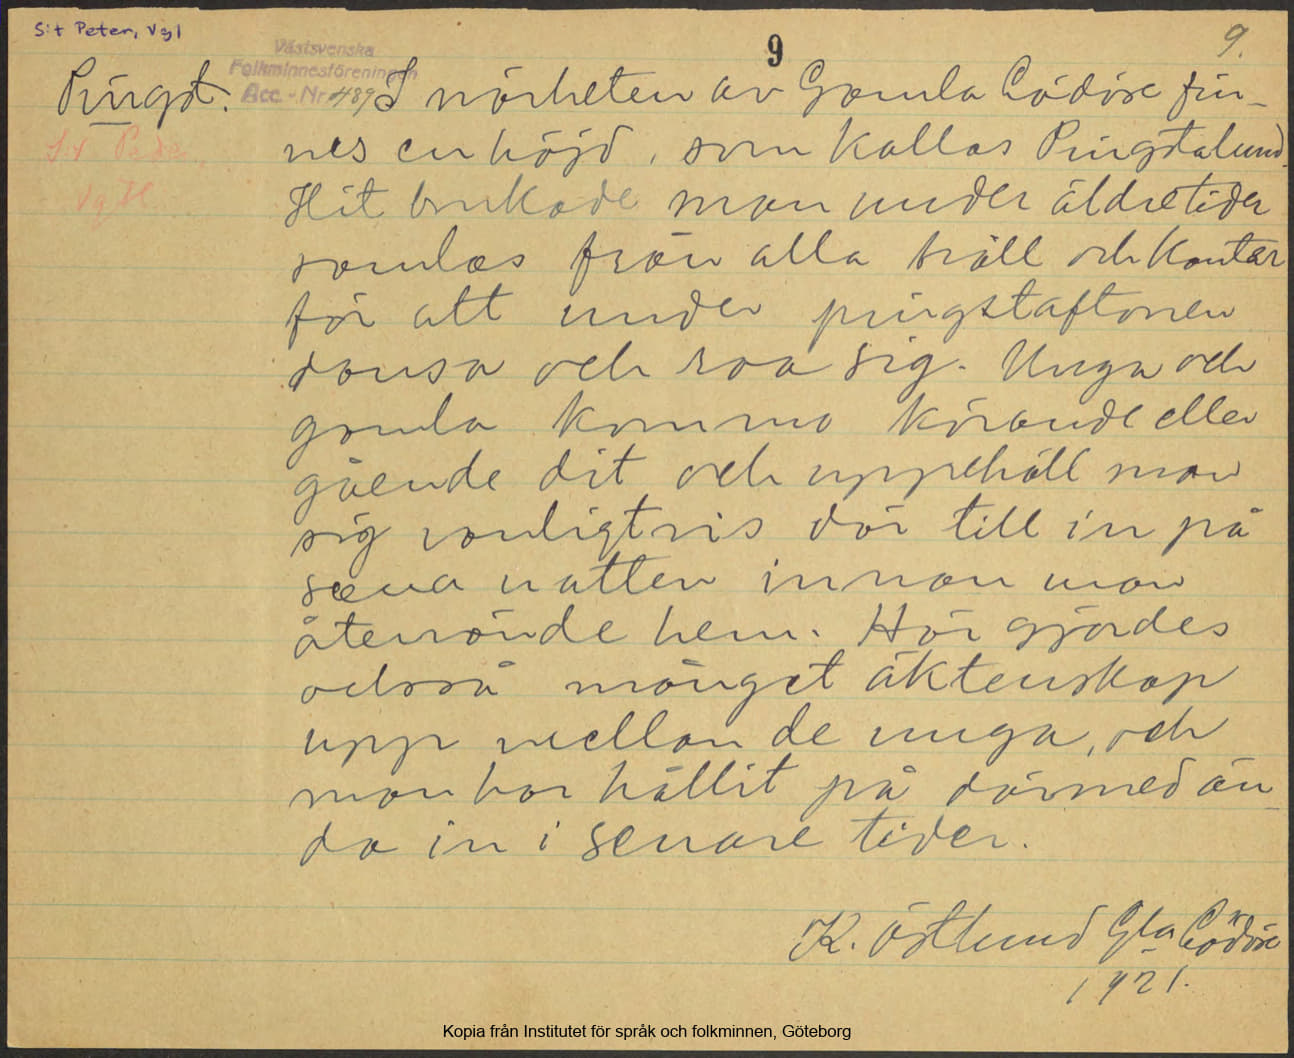 S:t Peter, Vgl
9
9.
Västsvenska
Folkminnesföreningen
Acc.-Nr 489
Pingst.
S:t Peter,
Vgtl
I närheten av Gamla Lödöse fin-
nes en höjd, som kallas Pingstalund.
Hit brukade man under äldre tider
samlas från alla håll och kanter
för att under pingstaftonen
dansa och roa sig. Unga och
gamla kommo körande eller
gående dit och uppehöll man
sig vanligtvis där till in på
sena natten innan man
återvände hem. Här gjordes
också månget äktenskap
upp mellan de unga, och
man har hållit på därmed än-
da in i senare tider.
K. Östlund Gla Lödöse
1921.
Kopia från Institutet för språk och folkminnen, Göteborg